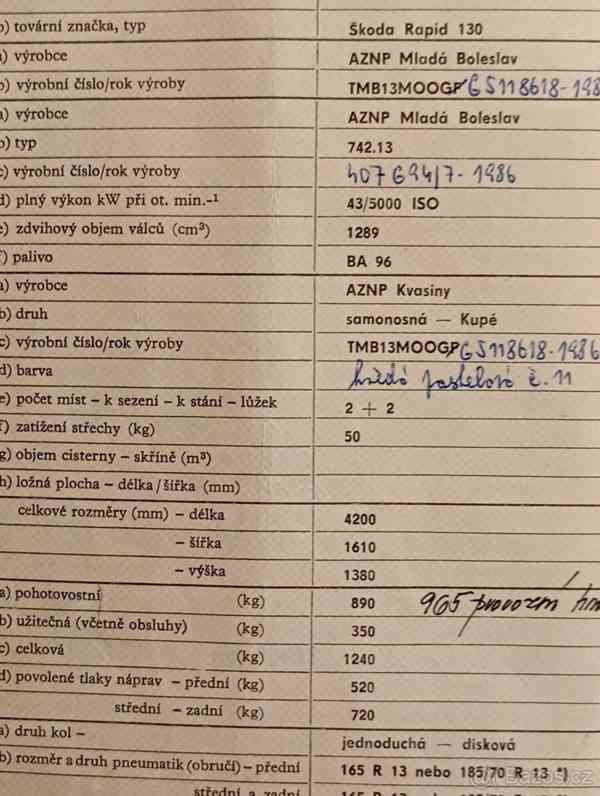 b) tovární značka, typ Škoda Rapid 130
a) výrobce AZNP Mladá Boleslav
b) výrobní číslo/rok výroby TMB13MOOGP G5118618-198
a) výrobce AZNP Mladá Boleslav
b) typ 742.13
c) výrobní číslo/rok výroby 407694/7-1986
d) plný výkon kW při ot. min.-1 43/5000 ISO
e) zdvihový objem válců (cm³) 1289
f) palivo BA 96
a) výrobce AZNP Kvasiny
b) druh samonosná — Kupé
c) výrobní číslo/rok výroby TMB13MOOGP G5118618-1986
d) barva hnědá pastelová č. 11
e) počet míst – k sezení – k stání – lůžek 2 + 2
f) zatížení střechy (kg) 50
g) objem cisterny – skříně (m³)
h) ložná plocha – délka/šířka (mm)
celkové rozměry (mm) – délka 4200
– šířka 1610
– výška 1380
a) pohotovostní (kg) 890 965 provozní
b) užitečná (včetně obsluhy) (kg) 350
c) celková (kg) 1240
d) povolené tlaky náprav – přední (kg) 520
střední – zadní (kg) 720
a) druh kol – jednoduchá — disková
b) rozměr a druh pneumatik (obručí) – přední 165 R 13 nebo 185/70 R 13 *)
střední a zadní 165 R 13 nebo 185/70 R 13
Bazos.cz